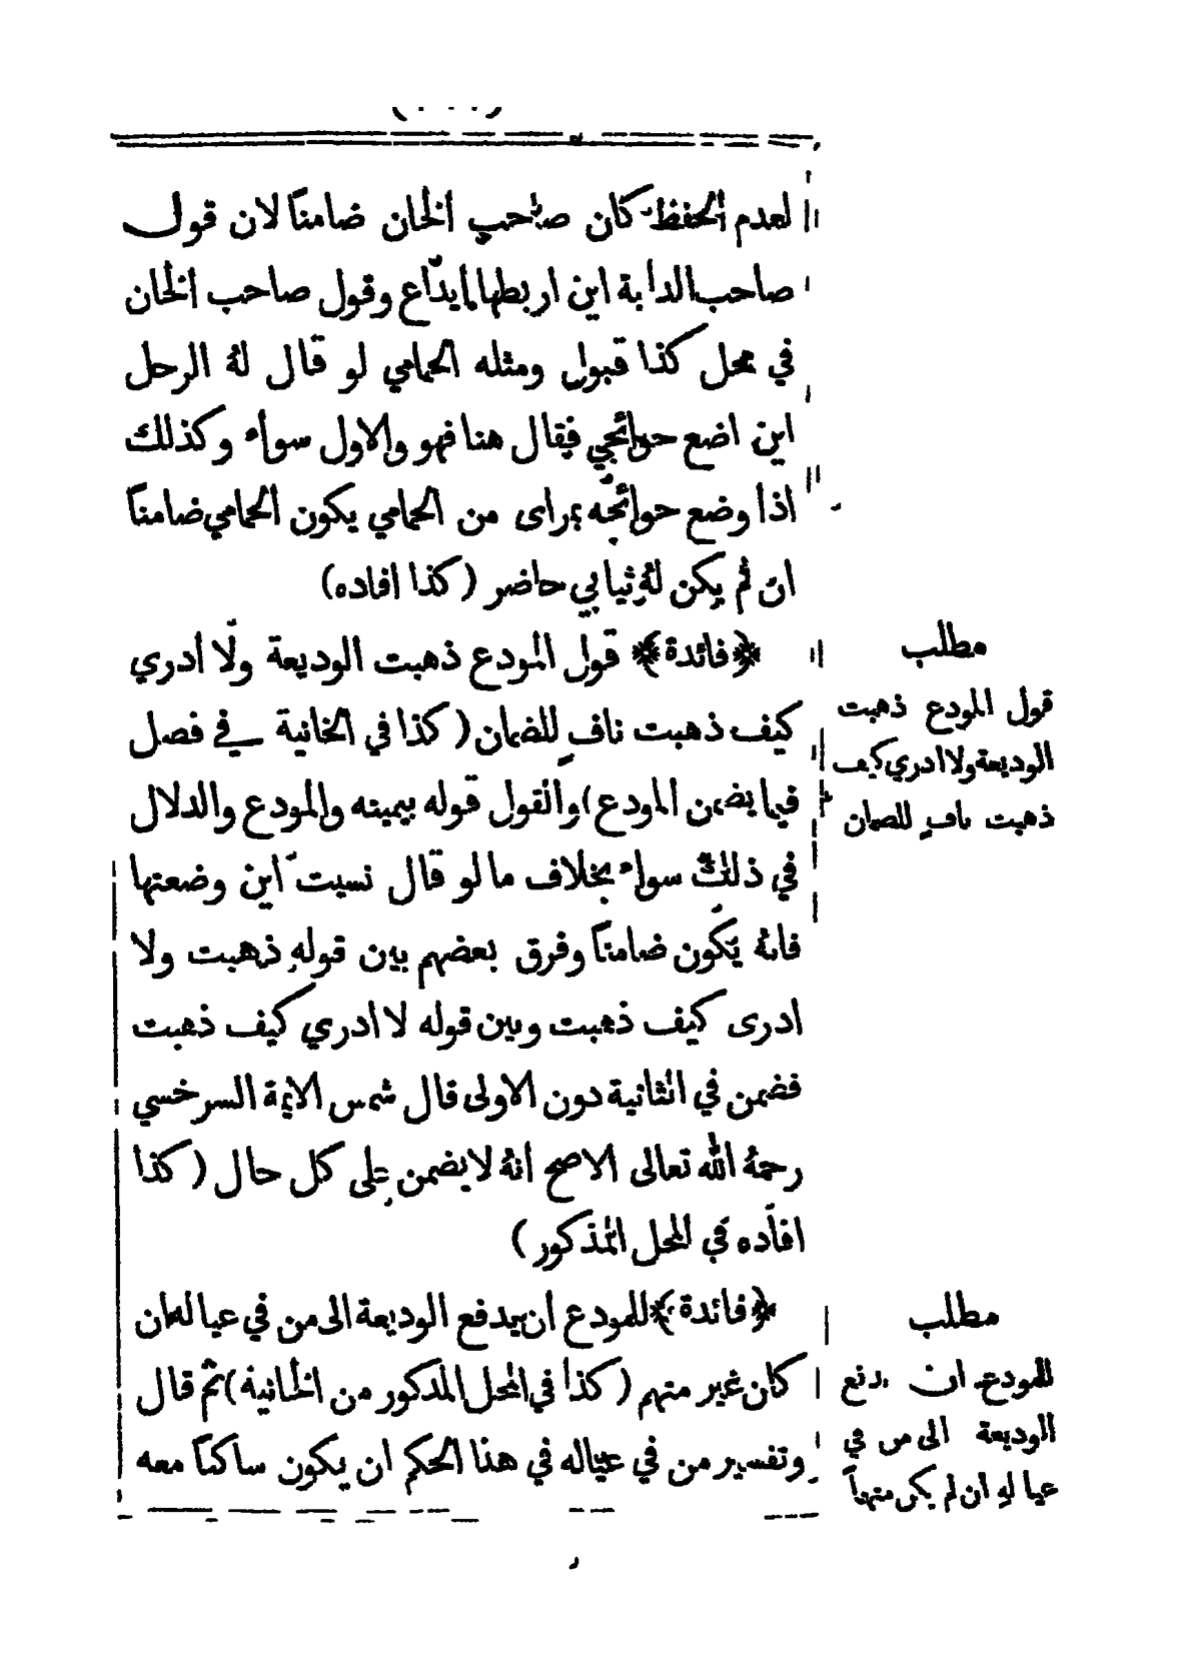 لعدم الحفظ كان صاحب الخان ضامناً لان قول
صاحب الدابة اين اربطها ايداع وقول صاحب الخان
في محل كذا قبول ومثله الحمامي لو قال لهُ الرجل
اين اضع حوائجي فقال هنا فهو والاول سواء وكذلك
اذا وضع حوائجه بمراى من الحمامي يكون الحمامي ضامناً
ان لم يكن لهُ ثيابي حاضر (كذا افاده)
مطلب
قول المودع ذهبت
الوديعة ولا ادري كيف
ذهبت نافٍ للضمان
﴿فائدة﴾ قول المودع ذهبت الوديعة ولا ادري
كيف ذهبت نافٍ للضمان (كذا في الخانية في فصل
فيما يضمن المودع) والقول قوله بيمينه والمودع والدلال
في ذلك سواء بخلاف ما لو قال نسيت اين وضعتها
فانه يكون ضامناً وفرق بعضهم بين قولهِ ذهبت ولا
ادرى كيف ذهبت وبين قوله لا ادري كيف ذهبت
فضمن في الثانية دون الاولى قال شمس الائمة السرخسي
رحمهُ الله تعالى الاصح انهُ لا يضمن على كل حال (كذا
افاده في المحل المذكور)
مطلب
للمودع ان يدفع
الوديعة الى من في
عياله ان لم يكن متهماً
﴿فائدة﴾ للمودع ان يدفع الوديعة الى من في عياله ان
كان غير متهم (كذا في المحل المذكور من الخانية) ثم قال
وتفسير من في عياله في هذا الحكم ان يكون ساكناً معه